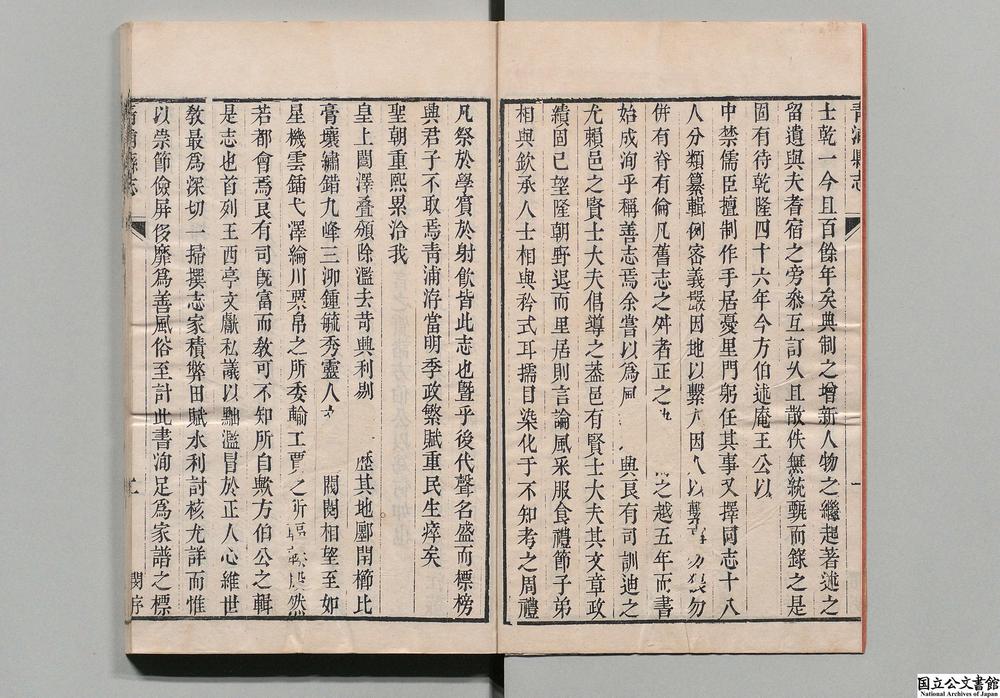 青浦縣志
士乾一今且百餘年矣典制之增新人物之繼起著述之
留遺與夫耆宿之旁叅互訂久且散佚無統輯而錄之是
固有待乾隆四十六年今方伯述庵王公以
中禁儒臣擅制作手居憂里門躬任其事又擇同志十八
人分類纂輯例客義嚴因地以繫 因 以 勿
併有脊有倫凡舊志之舛者正之 之越五年而書
始成洵乎稱善志焉余嘗以為風 典良有司訓迪之
尤賴邑之賢士大夫倡導之葢邑有賢士大夫其文章政
績固已望隆朝野退而里居則言論風采服食禮節子弟
相與欽承人士相與矜式耳擩目染化于不知考之周禮
一
凡祭於學賓於射飲皆此志也曁乎後代聲名盛而標榜
興君子不取焉青浦洊當明季政繁賦重民生瘁矣
聖朝重熙累洽我
皇上闓澤叠頒除濫去苛興利剔 歷其地郾閈櫛比
膏壤繡錯九峰三泖鍾毓秀靈人 閥閱相望至如
星機雲錨弋澤綸川粟帛之所委輸工賈之所 然
若都會焉良有司旣富而教可不知所自歟方伯公之輯
是志也首列王西亭文獻私議以黜濫冒於正人心維世
敎最爲深切一掃撰志家積弊田賦水利討核尤詳而惟
以崇節儉屏侈靡爲善風俗至計此書洵足爲家譜之標
青浦縣志
二
閔序
国立公文書館
National Archives of Japan